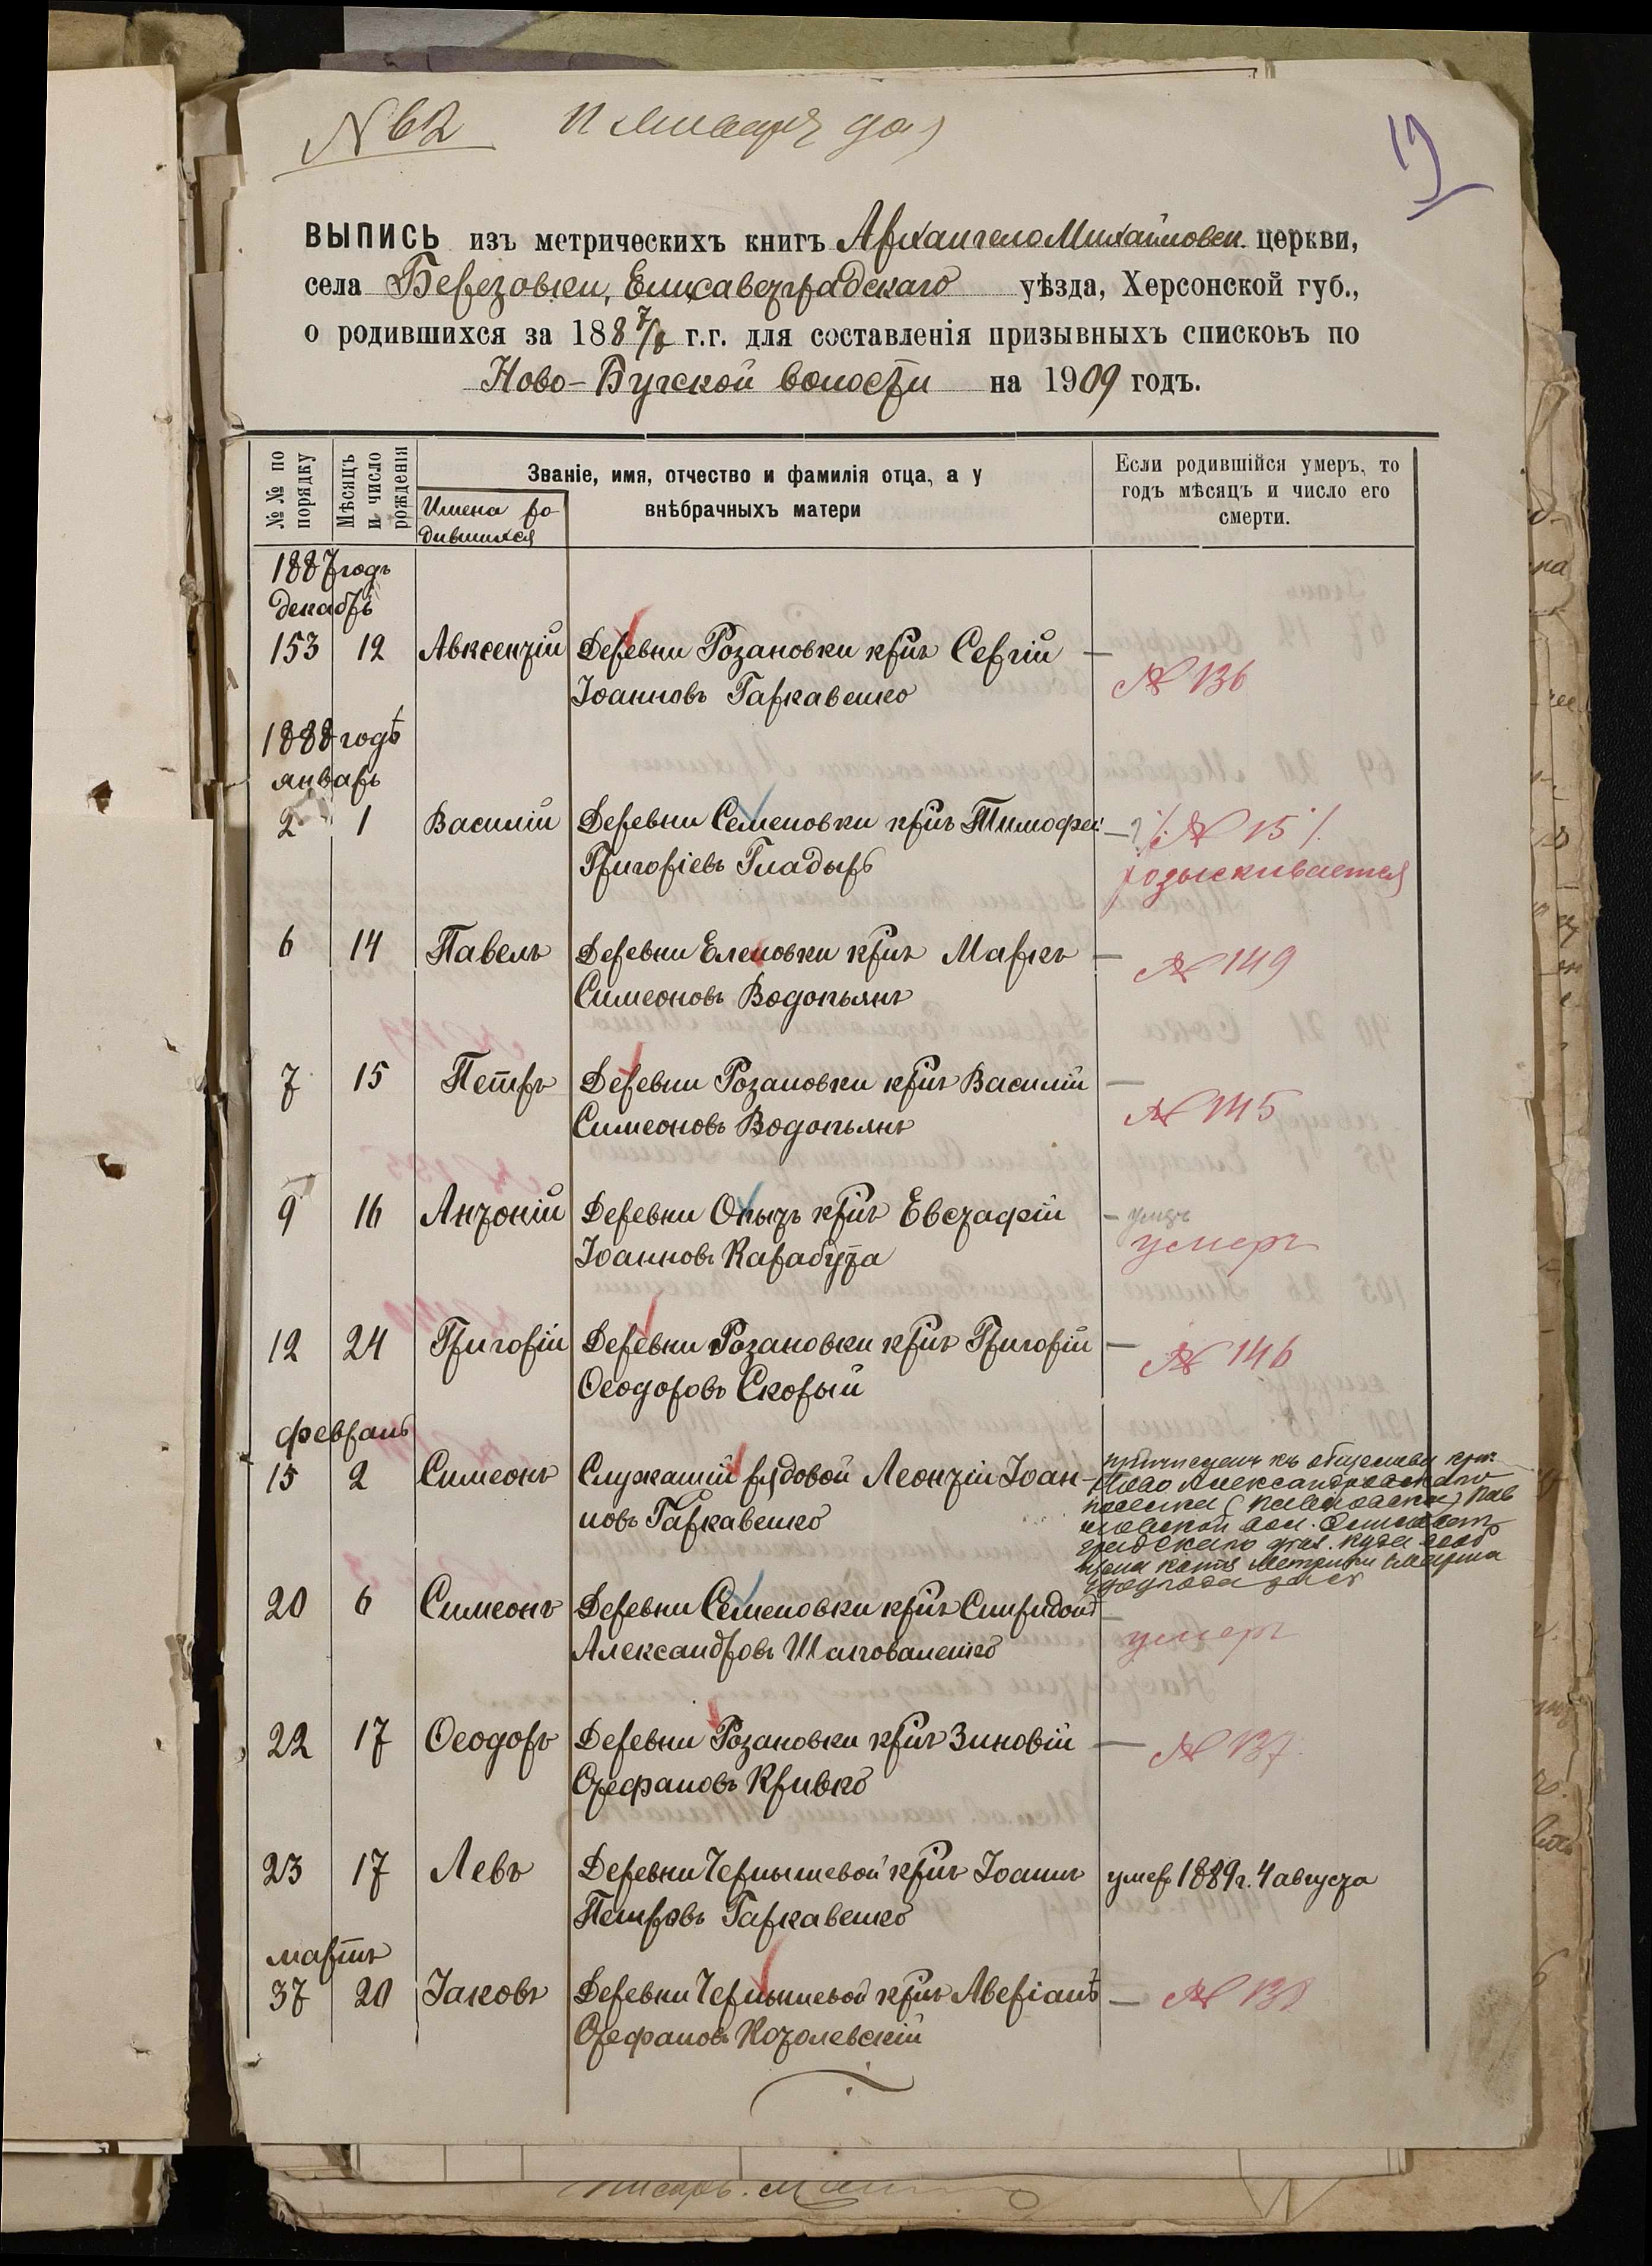 № 62
19
ВЫПИСЬ изъ метрическихъ книгъ АрхангелоМихайловск. церкви,
села Березовки, Елисаветградскаго уѣзда, Херсонской губ.,
о родившихся за 1887/8 г.г. для составленія призывныхъ списковъ по
Ново-Бугской волости на 1909 годъ.
№ № по порядку
Мѣсяцъ и число рожденія
Имена родившихся
Званіе, имя, отчество и фамилія отца, а у
внѣбрачныхъ матери
Если родившійся умеръ, то
годъ мѣсяцъ и число его
смерти.
1887 годъ
декабрь
153 12 Авксентій Деревни Розановки кр͠нъ Сергій — № 136
Іоанновъ Гаркавенко
1888 годъ
январь
2 1 Василій Деревни Семеновки кр͠нъ Тимофей — № 15
Григоріевъ Гладырь розыскивается
6 14 Павелъ Деревни Еленовки кр͠нъ Маркъ — № 149
Симеоновъ Водопьянъ
7 15 Петръ Деревни Розановки кр͠нъ Василій — № 145
Симеоновъ Водопьянъ
9 16 Антоній Деревни Опытъ кр͠нъ Евстафій — умеръ
Іоанновъ Карабута умеръ
12 24 Григорій Деревни Розановки кр͠нъ Григорій — № 146
Ѳеодоровъ Скорый
февраль
15 2 Симеонъ Служащій рядовой Леонтій Іоан-
новъ Гаркавенко
причисленъ къ обществу крест.
Ново Александровскаго
20 6 Симеонъ Деревни Семеновки кр͠нъ Спиридонъ — умеръ
Александровъ Шаповаленко
22 17 Ѳеодоръ Деревни Розановки кр͠нъ Зиновій — № 137
Стефановъ Кривко
23 17 Левъ Деревни Чернышевой кр͠нъ Іоаннъ умеръ 1889 г. 4 августа
Петровъ Гаркавенко
мартъ
37 20 Іаковъ Деревни Чернышевой кр͠нъ Аверіанъ — № 138
Стефановъ Котолевскій